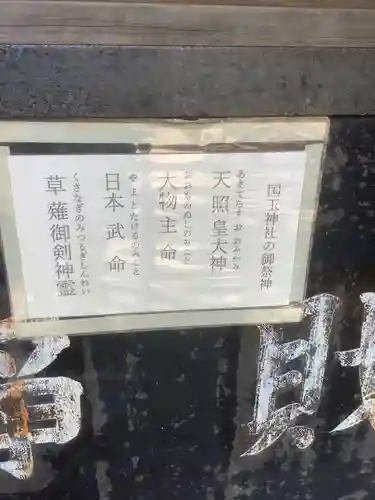 国玉神社の御祭神
あまてらす おおみかみ
天照皇大神
おおものぬしのみこと
大物主命
やまとたけるのみこと
日本武命
くさなぎのみつるぎしんれい
草薙御剣神霊